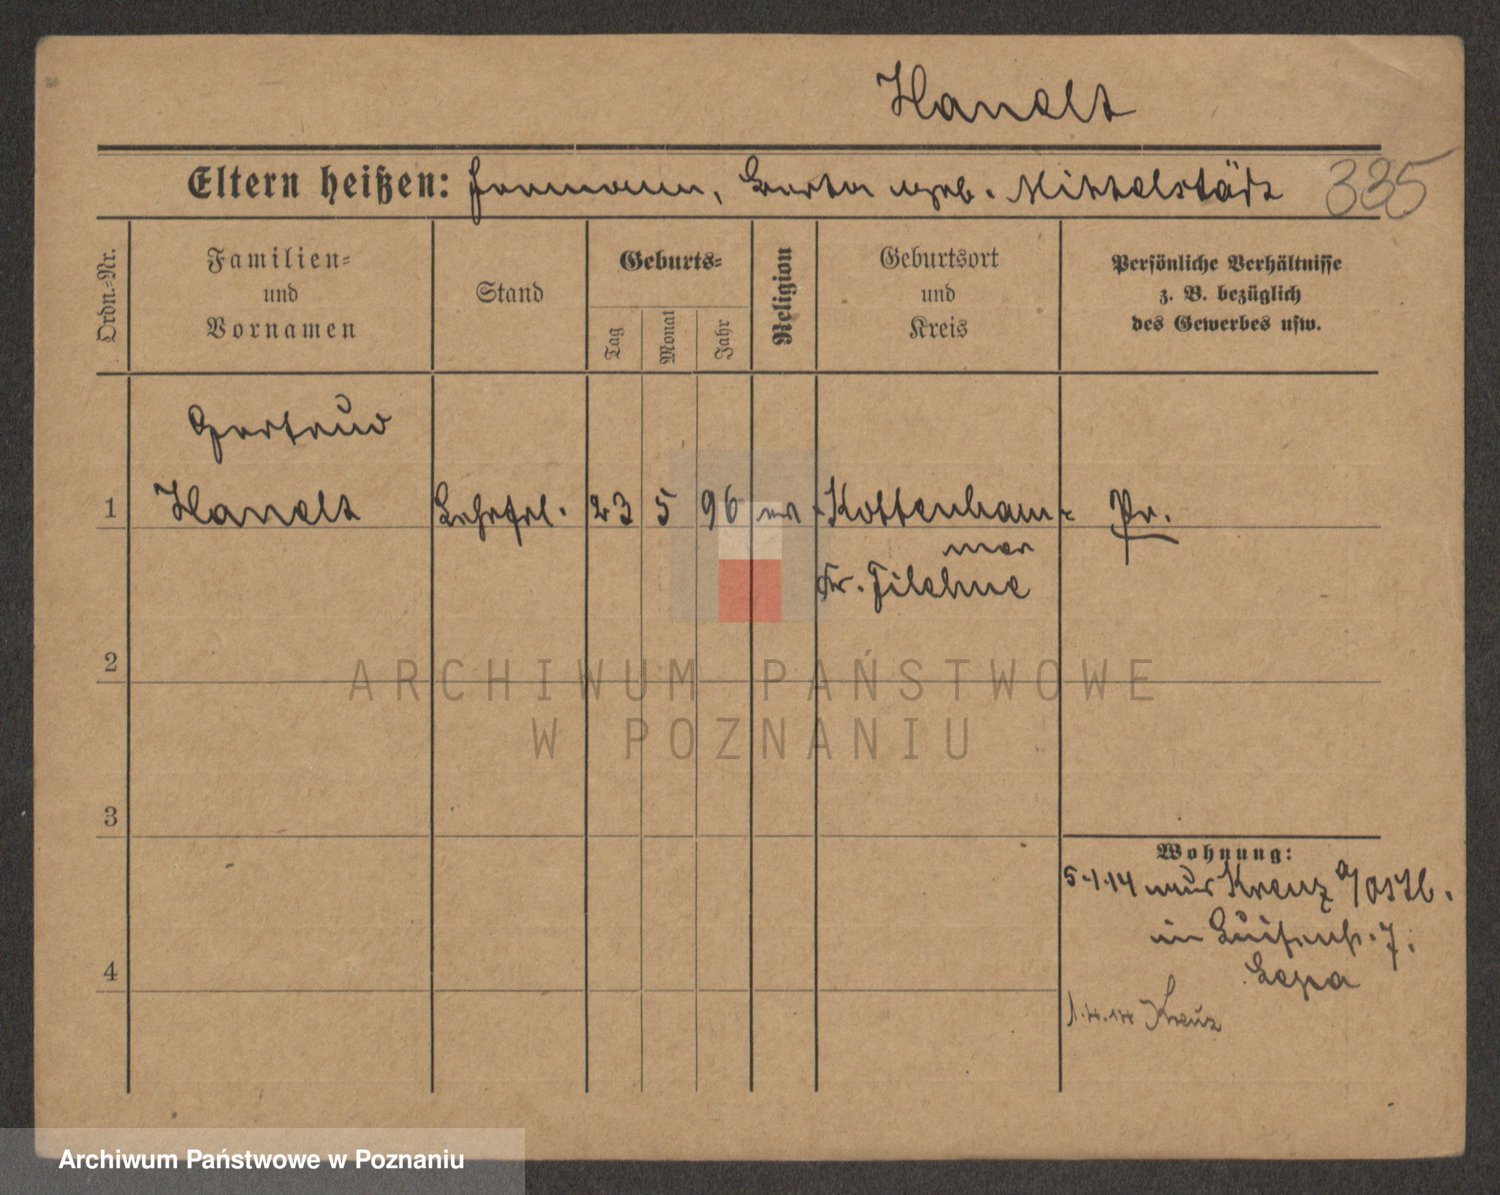 Handt
Eltern heißen: Hermann, Berta geb. Mittelstädt 335
Ordn.-Nr.
Familien-
und
Vornamen
Stand
Geburts-
Tag
Monat
Jahr
Religion
Geburtsort
und
Kreis
Persönliche Verhältnisse
z. B. bezüglich
des Gewerbes usw.
Gertrud
1 Handt Lehrfrl. 23 5 96 ev Kottenham- Pr.
mer
Kr. Filehne
2
ARCHIWUM PAŃSTWOWE
W POZNANIU
3
Wohnung:
5.1.14 aus Kreuz a/Ostb.
in Luisenstr. 7.
4
1.4.14 Kreuz
Archiwum Państwowe w Poznaniu